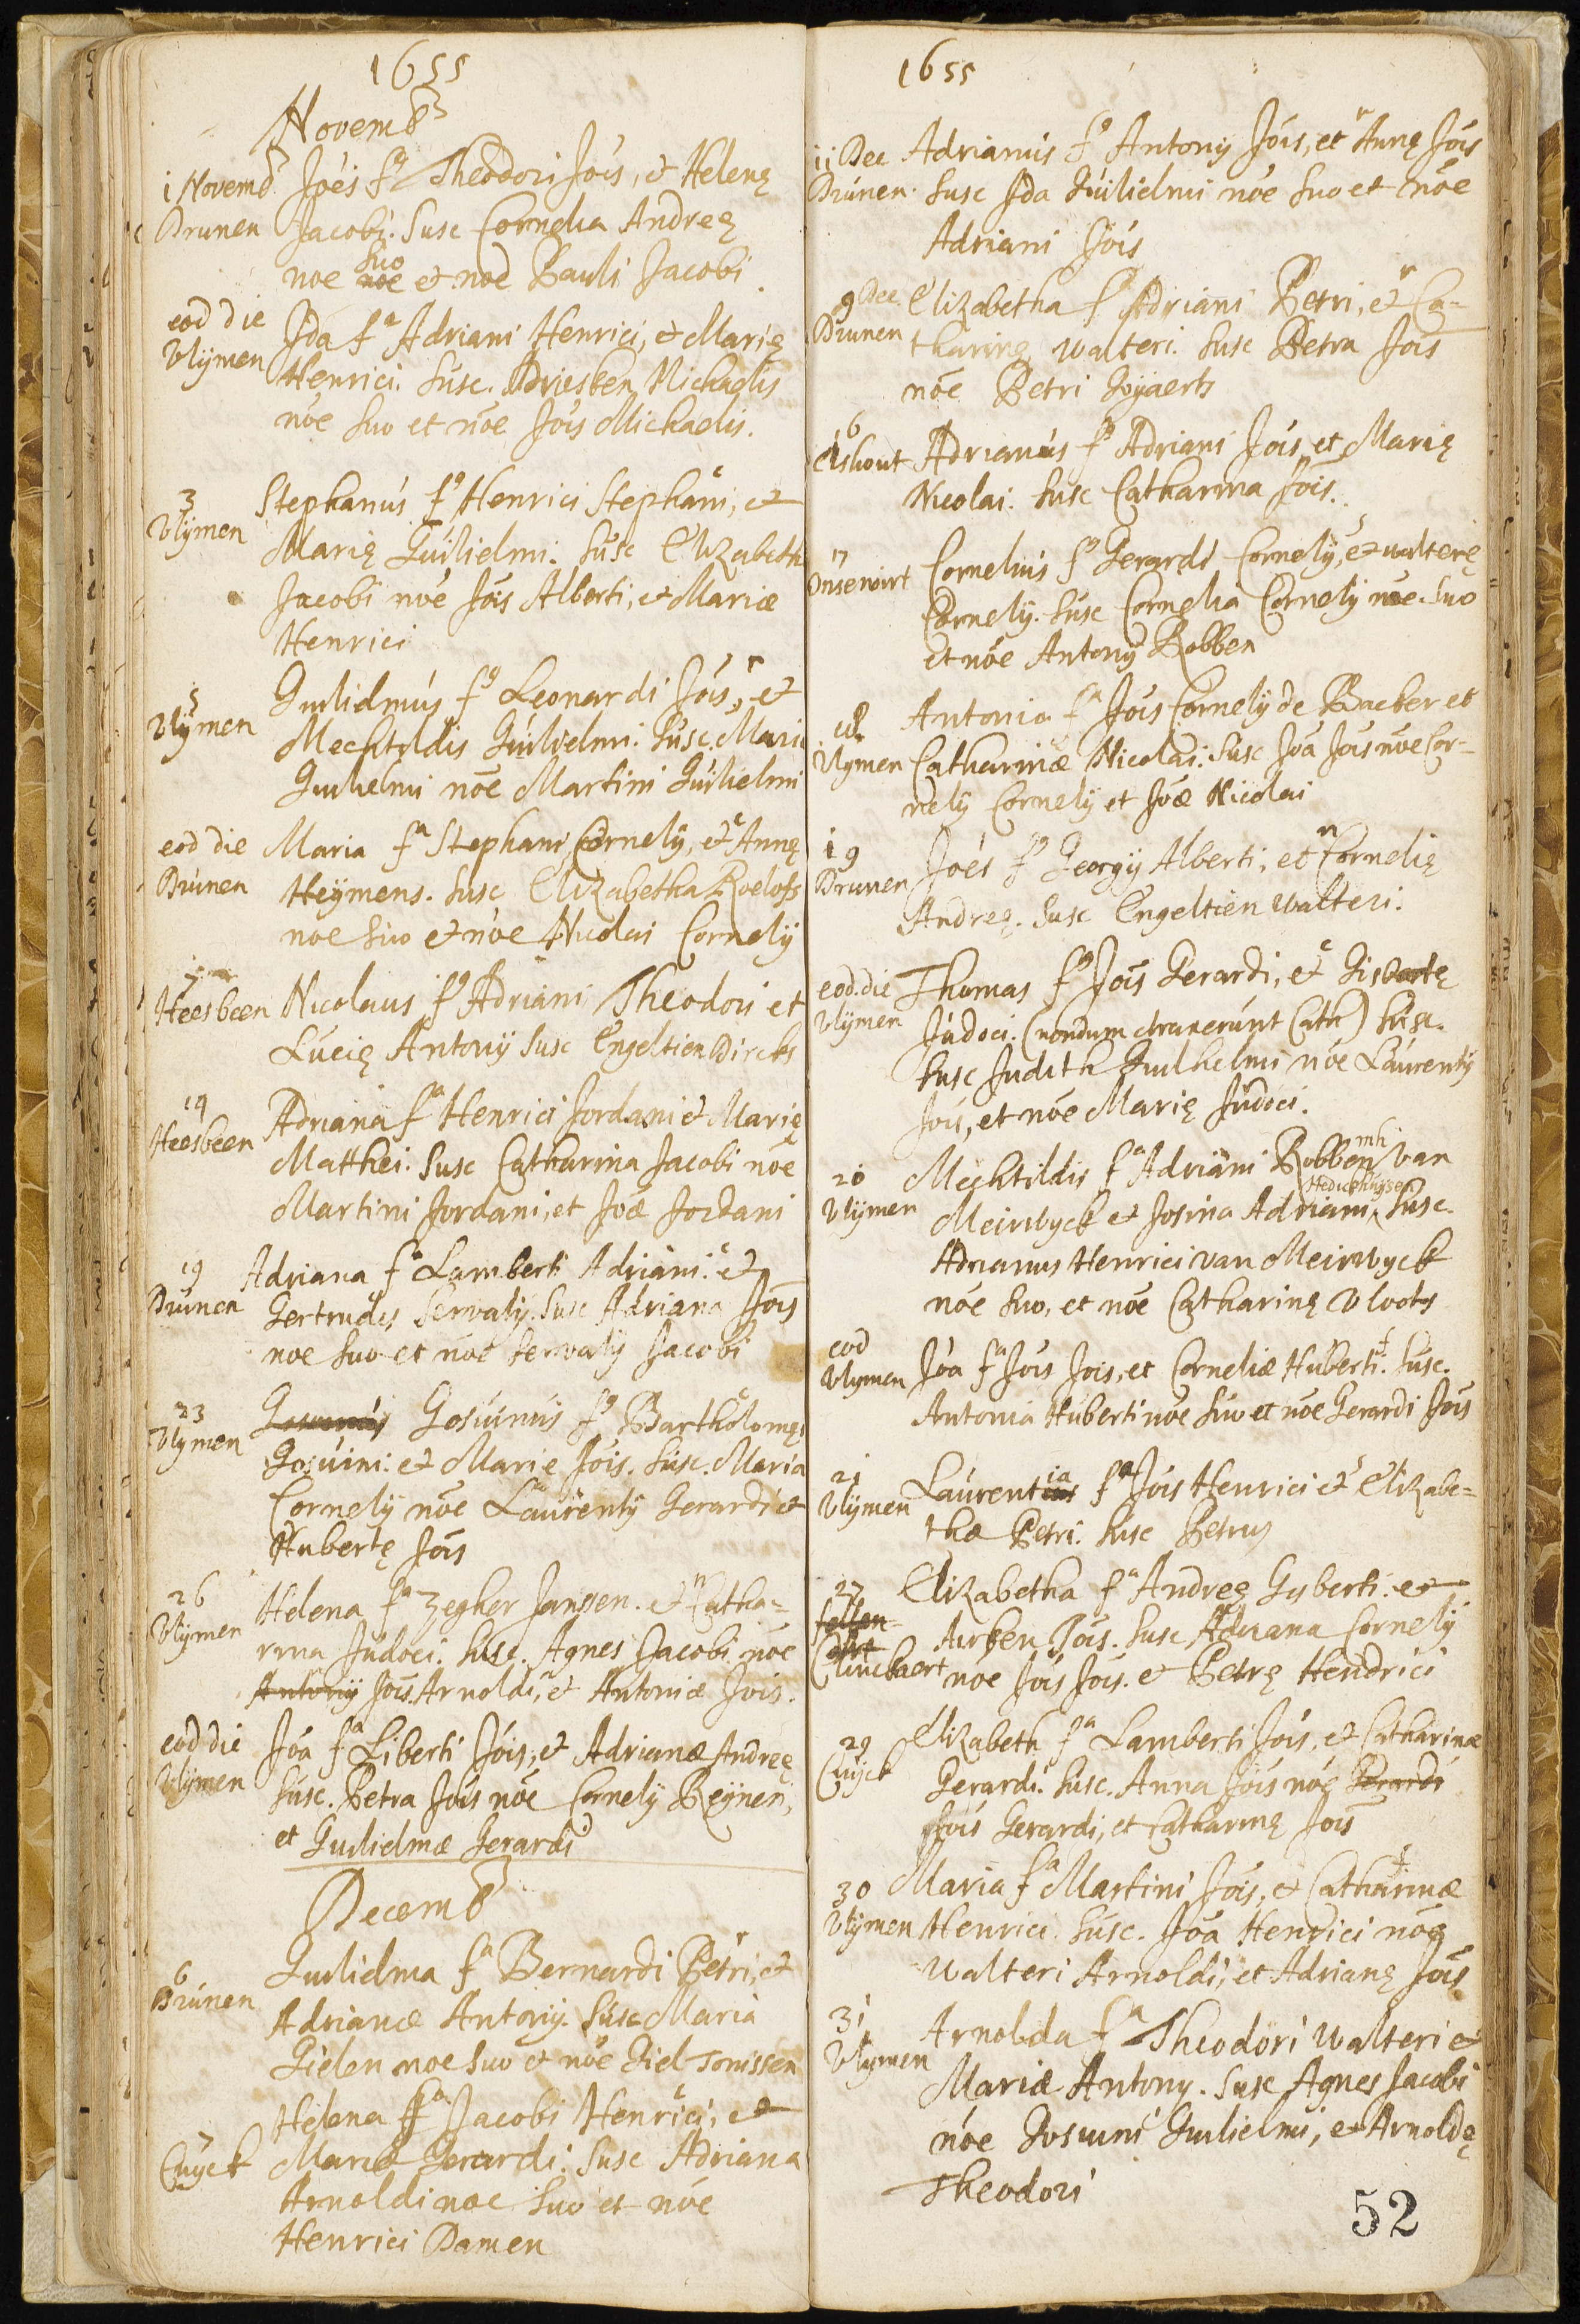 1655
Novemb
1 Novemb Joës fs Theodori Jois, et Helenę
Drunen Jacobi. Susc Cornelia Andreę
suo
noe noe et noe Pauli Jacobi
eod die Ida fa Adriani Henrici, et Marię
Vlijmen Henrici. Susc. Driesken Michaelis
nōe suo et nōe Jois Michaelis.
3 Stephanus fs Henrici Stephani, et
Vlijmen Marię Guilielmi. Susc Elizabeth
Jacobi nōe Jois Alberti, et Mariæ
Henrici
5 Guilielmus fs Leonardi Jois, et
Vlijmen Mechtildis Guilielmi. Susc. Maria
Guilielmi nōe Martini Guilielmi
eod die Maria fa Stephani Cornelij, et Annę
Drunen Heijmens. Susc Elizabetha Roelofs
noe suo et nōe Nicolai Cornelij
7
Heesbeen Nicolaus fs Adriani Theodori et
Lucię Antonij Susc Engeltien Dircks
14 Adriana fa Henrici Jordani et Marię
Heesbeen Matthei. Susc Catharina Jacobi nōe
Martini Jordani, et Joæ Jordani
19 Adriana fa Lamberti Adriani. et
Drunen Gertrudis Servatij. Susc Adriana Jois
noe suo et nōe Servatij Jacobi
23 Gosuinus Gosuinus fs Bartholomęi
Vlijmen Gosuini. et Marie Jois. Susc. Maria
Cornelij nōe Laurentij Gerardi et
Hubertę Jois
26 Helena fa Zegher Janssen. et Catha=
Vlijmen rina Judoci. Susc. Agnes Jacobi nōe
Antonij Jois Arnoldi, et Antoniæ Jois.
eod die Joa fa Liberti Jois, et Adrianæ Andreę
Vlijmen Susc. Petra Jois nōe Cornelij Reijnen,
et Guilielmæ Gerardi
Decemb
6 Guilielma fa Bernardi Petri, et
Drunen Adrianæ Antonij. Susc Maria
Gielen noe suo et nōe Giel Tonissen
Helena fa Jacobi Henrici, et
7
Cuijck Mariæ Gerardi. Susc Adriana
Arnoldi noe suo et nōe
Henrici Damen
1655
11 Dec Adrianus fs Antonij Jois, et Annę Jois
Drunen. Susc Ida Guilielmi nōe suo et nōe
Adriani Jois
9 Dec. Elizabetha fa Adriani Petri, et Ca=
Drunen tharinę Walteri. Susc Petra Jois
nōe Petri Goijaerts
16
Elshout Adrianus fs Adriani Jois, et Marię
Nicolai. Susc Catharina Jois.
17 Cornelius fs Gerardi Cornelij, et Walterę
Onsenoirt Cornelij. Susc Cornelia Cornelij nōe suo
et nōe Antonij Robben
Antonia fa Jois Cornelij de Backer et
Vlijmen Catharinæ Nicolai. Susc Joa Jois nōe Cor=
nelij Cornelij et Joæ Nicolai
19 Joës fs Georgij Alberti, et Cornelię
Drunen Andreę. Susc Engeltien Walteri.
eod. die Thomas fs Jois Gerardi, et Gisbertę
Vlijmen Judoci. (nondum contraxerunt Cath) Susc.
Susc Judith Guilhelmi nōe Laurentij
Jois, et nōe Marię Judoci.
mli
20 Mechtildis fa Adriani Robben van
Hedickhuijsen
Vlijmen Meirwijck et Josina Adriani Susc.
Adrianus Henrici van Meirwijck
nōe suo, et nōe Catharinę Vloots
eod
Vlijmen Joa fa Jois Jois, et Corneliæ Huberti. Susc.
Antonia Huberti nōe suo et nōe Gerardi Jois
ia
21 Laurentius fa Jois Henrici et Elizabe=
Vlijmen thæ Petri. Susc Petrus
27 Elizabetha fa Andreę Gijsberti. et
Airken Jois. Susc Adriana Cornelij
Clinckaert noe Jois Jois. et Petrę Hendrici
29 Elizabeth fa Lamberti Jois, et Catharinæ
Cuijck Gerardi. Susc. Anna Jois nōe Gerardi
Jois Gerardi, et Catharinę Jois
30 Maria fa Martini Jois, et Catharinæ
Vlijmen Henrici. Susc. Joa Henrici nōe
Walteri Arnoldi, et Adrianę Jois
31 Arnolda fa Theodori Walteri et
Vlijmen Mariæ Antonij. Susc Agnes Jacobi
nōe Gosuini Guilielmi, et Arnoldę
Theodori
52